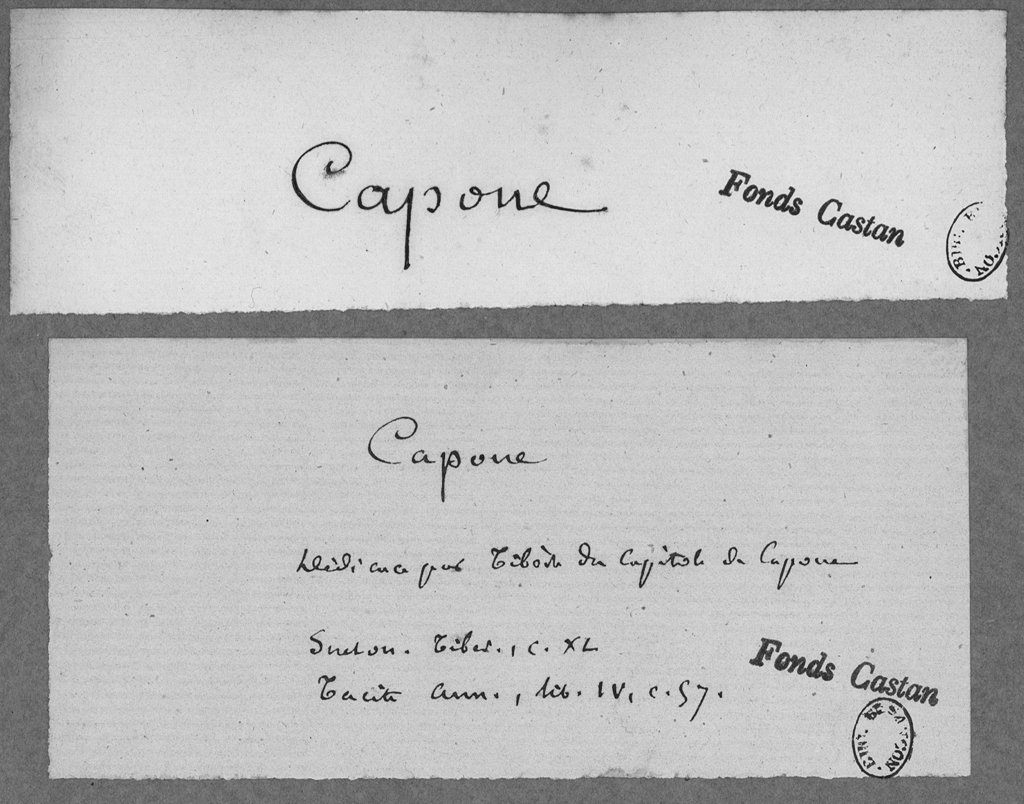 Capoue
Fonds Castan
Capoue
Dédicace par Tibère du Capitole de Capoue
Sueton. Tiber., c. XL
Tacite Ann., lib. IV, c. 57.
Fonds Castan
BIBL. BESANÇON